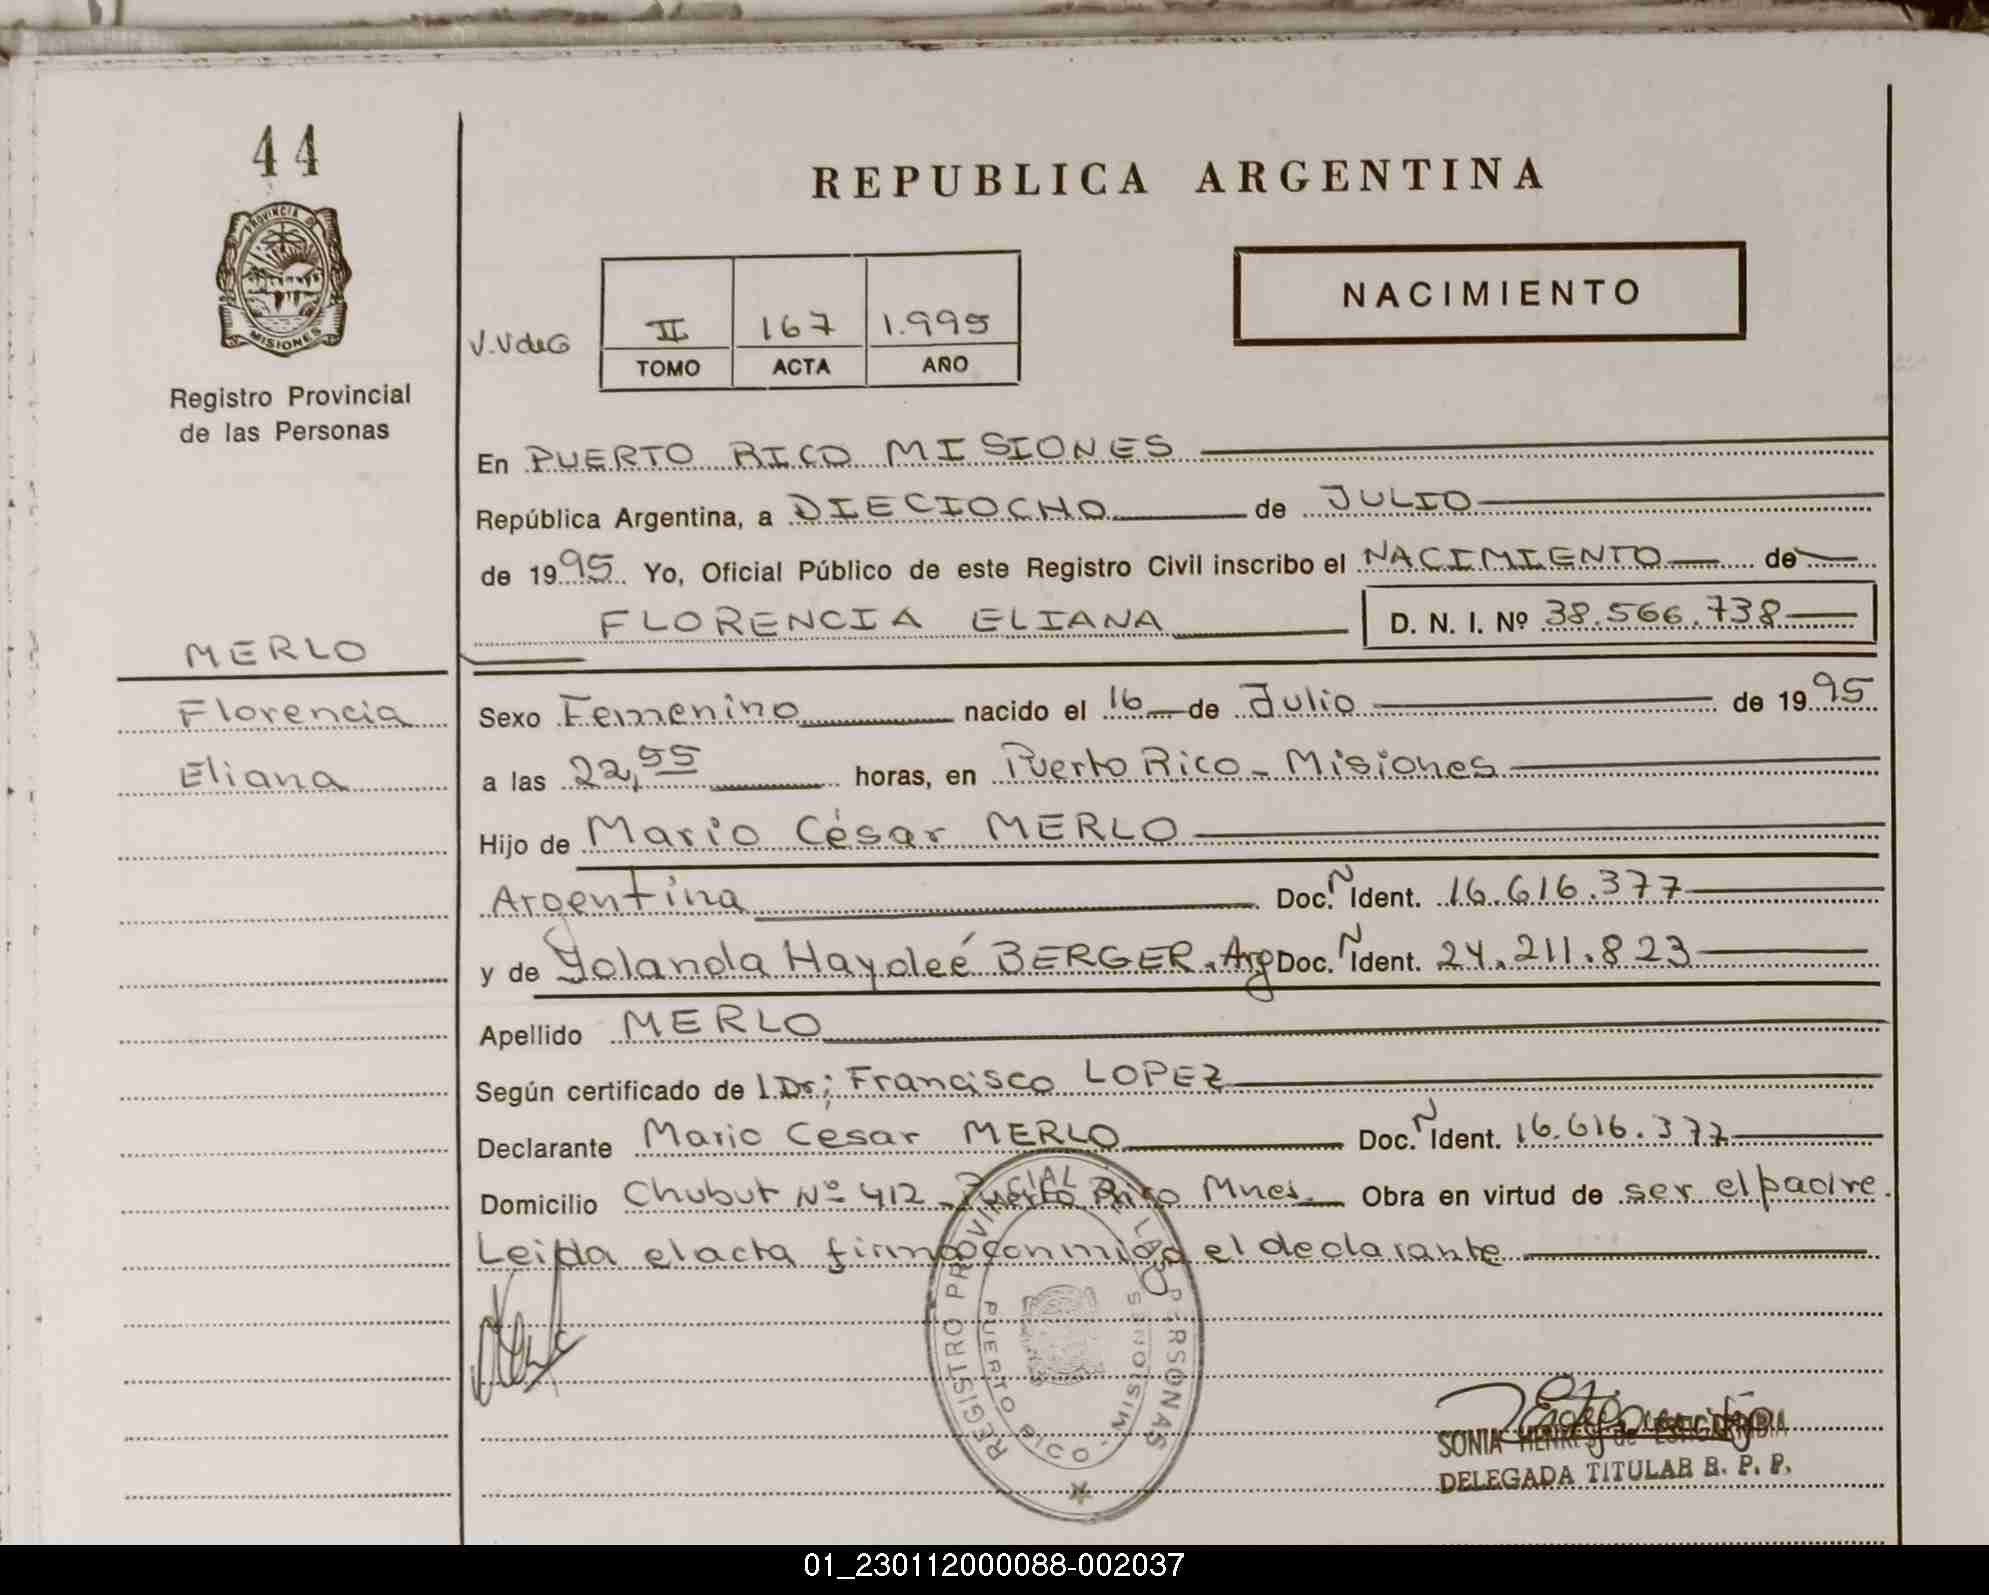 44
REPUBLICA ARGENTINA
PROVINCIA DE
MISIONES
NACIMIENTO
V.VdeG
II 167 1.995
TOMO ACTA AÑO
Registro Provincial
de las Personas
En PUERTO RICO MISIONES
República Argentina, a DIECIOCHO de JULIO
de 1995 Yo, Oficial Público de este Registro Civil inscribo el NACIMIENTO de
FLORENCIA ELIANA D. N. I. Nº 38.566.738
MERLO
Florencia
Eliana
Sexo Femenino nacido el 16 de Julio de 1995
a las 22,55 horas, en Puerto Rico - Misiones
Hijo de Mario César MERLO
Argentina Doc. N Ident. 16.616.377
y de Yolanda Haydeé BERGER. Arg Doc. N Ident. 24.211.823
Apellido MERLO
Según certificado de Dr; Francisco LOPEZ
Declarante Mario Cesar MERLO Doc. N Ident. 16.616.377
Domicilio Chubut Nº 412 - Puerto Rico Mnes. Obra en virtud de ser el padre.
Leida el acta firma conmigo el declarante
REGISTRO PROVINCIAL DE LAS PERSONAS
PUERTO RICO - MISIONES
SONIA
DELEGADA TITULAR R. P. P.
01_230112000088-002037